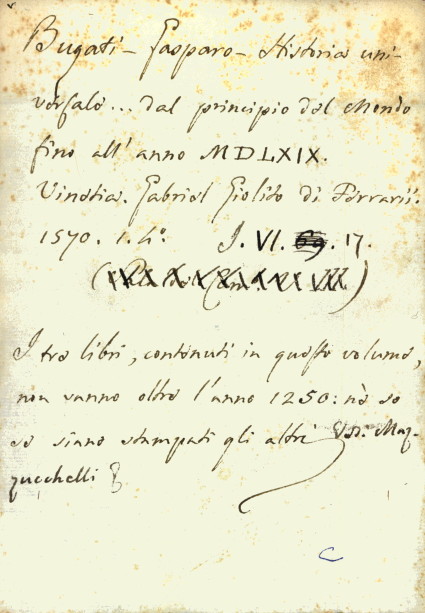 Bugati - Gasparo - Historia uni-
versale... dal principio del Mondo
fino all' anno MDLXIX.
Vinetia. Gabriel Giolito di Ferrarii.
1570. 1. 4°. J. VI. 69. 17.
I tre libri, contenuti in questo volume,
non vanno oltre l'anno 1250: nè so
se siano stampati gli altri Maz-
zucchelli
C